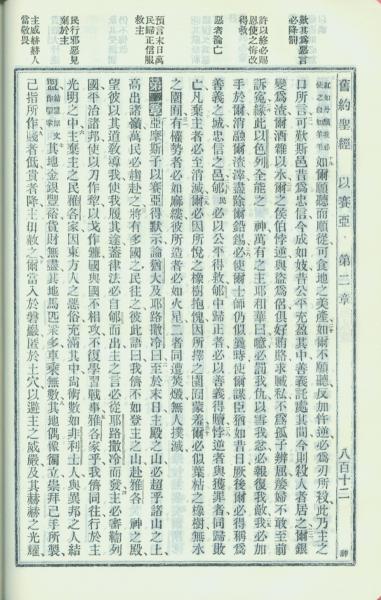 舊約聖經 以賽亞 第二章 八百十二
歎其為惡言
必降罰
許以終必賜
恩使之悔改
得救
惡者淪亡
預言末日萬
民歸正信服
救主
民行邪惡見
棄於主
主威赫赫人
當敬畏
如爾願聽而順從可食地之美產如爾不願聽反加忤逆必為刃所殺此乃主之
口所言可歎斯邑昔為忠信今成如妓昔公平充盈其中善義託處其間今則殺人者居之爾銀
變為渣爾酒雜以水爾之侯伯悖逆與盜為侶俱好賄賂求贓私不為孤子辨屈嫠婦不敢至前
訴冤緣此以色列全能之 神萬有之主耶和華曰噫必罰我仇以雪我忿必報復我敵我必加
手於爾消融爾渣滓盡除爾鉛錫必使爾士師仍似曩時使爾謀臣猶如昔日厥後爾必得稱為
善義之城忠信之邑郇民必以公平得救郇中歸正者必以善義得贖悖逆者與獲罪者同歸敗
亡凡棄主者必至消滅爾必因所悅之橡樹抱愧因所擇之園囿蒙羞爾必似葉枯之橡樹無水
之園囿有權勢者必如麻縷彼所造者必如火星二者同遭焚燬無人撲滅
第二章亞摩斯子以賽亞得默示論猶大及耶路撒冷曰至於末日主殿之山必超乎諸山之上
高出諸嶺萬民必趨赴之將有多國之民往之彼此語曰我儕不如登主之山赴雅各 神之殿
望彼以其道教導我使我履其途蓋律法必自郇而出主之言必從耶路撒冷而發主必審鞫列
國平治諸邦使以刀作犁以戈作鐮國與國不相攻不復學習戰事雅各家乎我儕同往行於主
光明之中主棄主之民雅各家因東方人之惡俗充滿其中尚術數如非利士人與異邦之人結
盟其地金銀豐裕貨財無盡其地馬匹眾多車乘無數其地偶像徧立崇拜己手所製
己指所作賤者低貴者降主毋赦之爾當入於磐巖匿於土穴以避主之威嚴及其赫赫之光耀